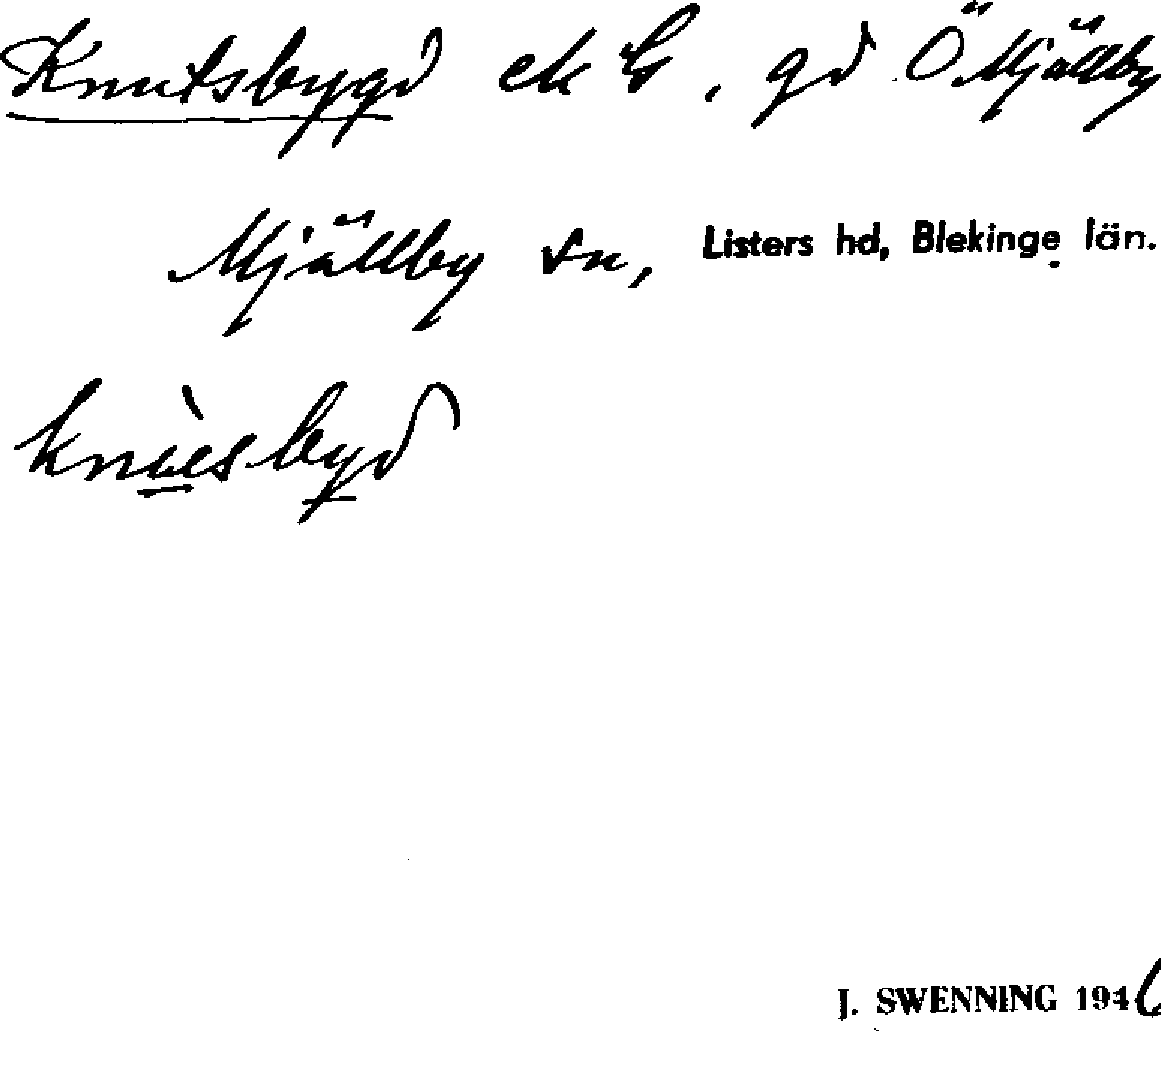 Knutsbygd ek G, gd Ö Mjällby
Mjällby sn, Listers hd, Blekinge län.
J. SWENNING 1946